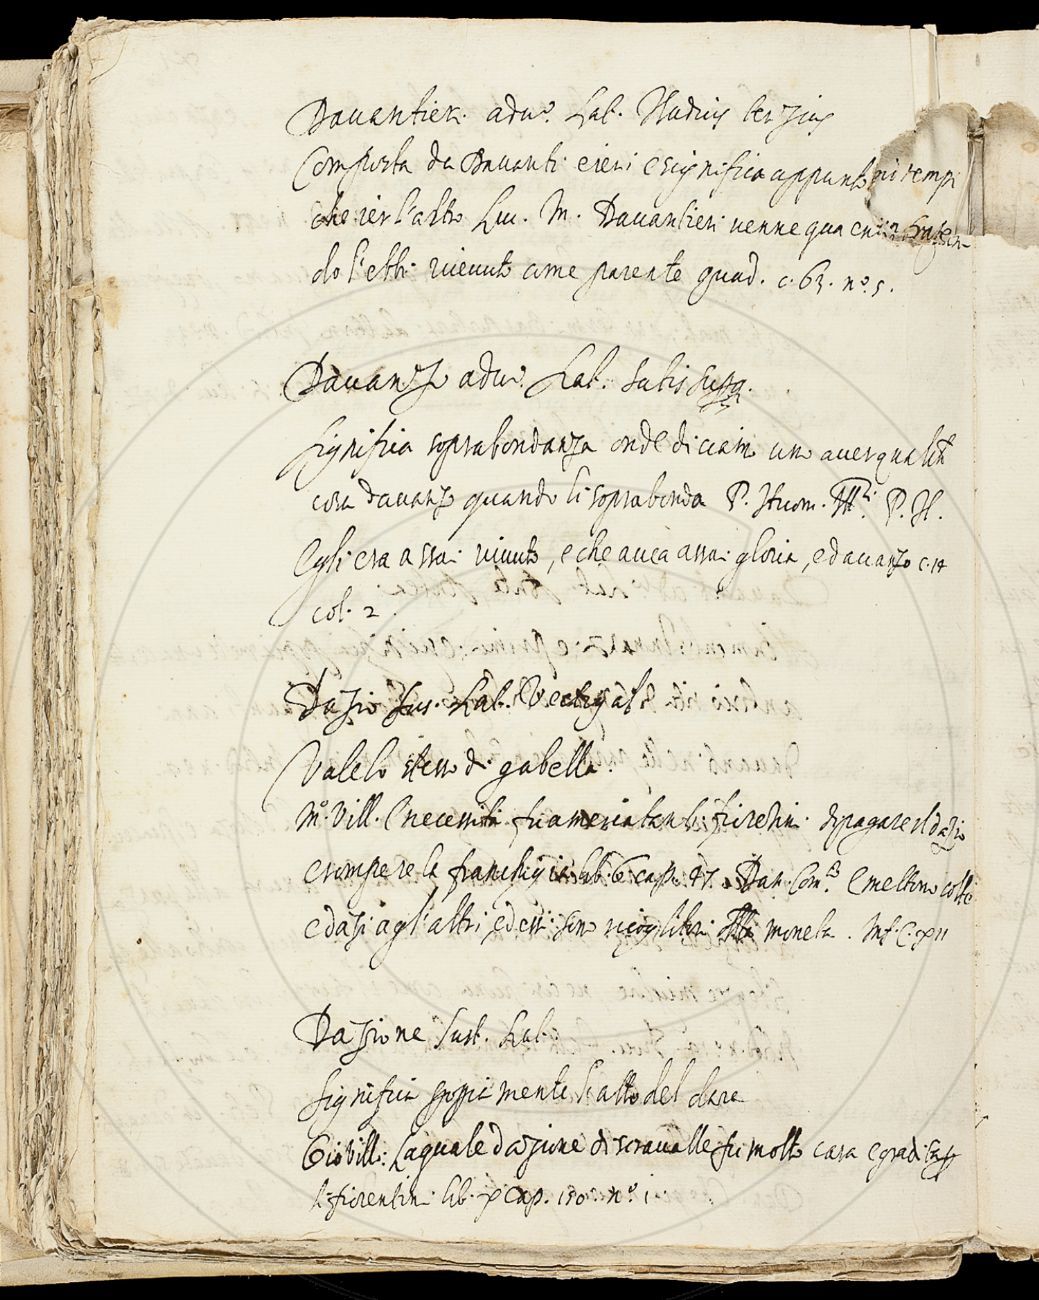 Dauantieri. adu.o Lat. Nudius tertius
Composta da Dauanti. e ieri e significa appunto più tempi
che ier l'altro Luc. M. Dauantieri uenne qua
do l'ebbi riceuuto come parente quad. c. 63. n.o 5.
Dauanzo adu.o Lat. Satis superq.
Significa soprabondanza onde diciamo uno auer qualch
cosa dauanzo quando li soprabonda P. Huom. Ill.i P. H.
Egli era assai uiuuto, e che auea assai gloria, e dauanzo c. 14
col. 2.
Dazio Sus. Lat. Vectigal
Vale lo stesso di gabella.
M. Vill. Necessità fu a mercatanti fiorentini di pagare il dazio
e rompere la franchigia lib. 6 cap. 47. Dan. Com. E mettono colte
e dazi agl'altri, ed essi sono ricoglitori della moneta. Inf. C. XII
Dazione Sust. Lat.
Significa propiamente l'atto del dare
Gio Vill: La quale dazione di Seraualle fu molto cara e gradita
a fiorentini. lib. X cap. 150. n.o 1.